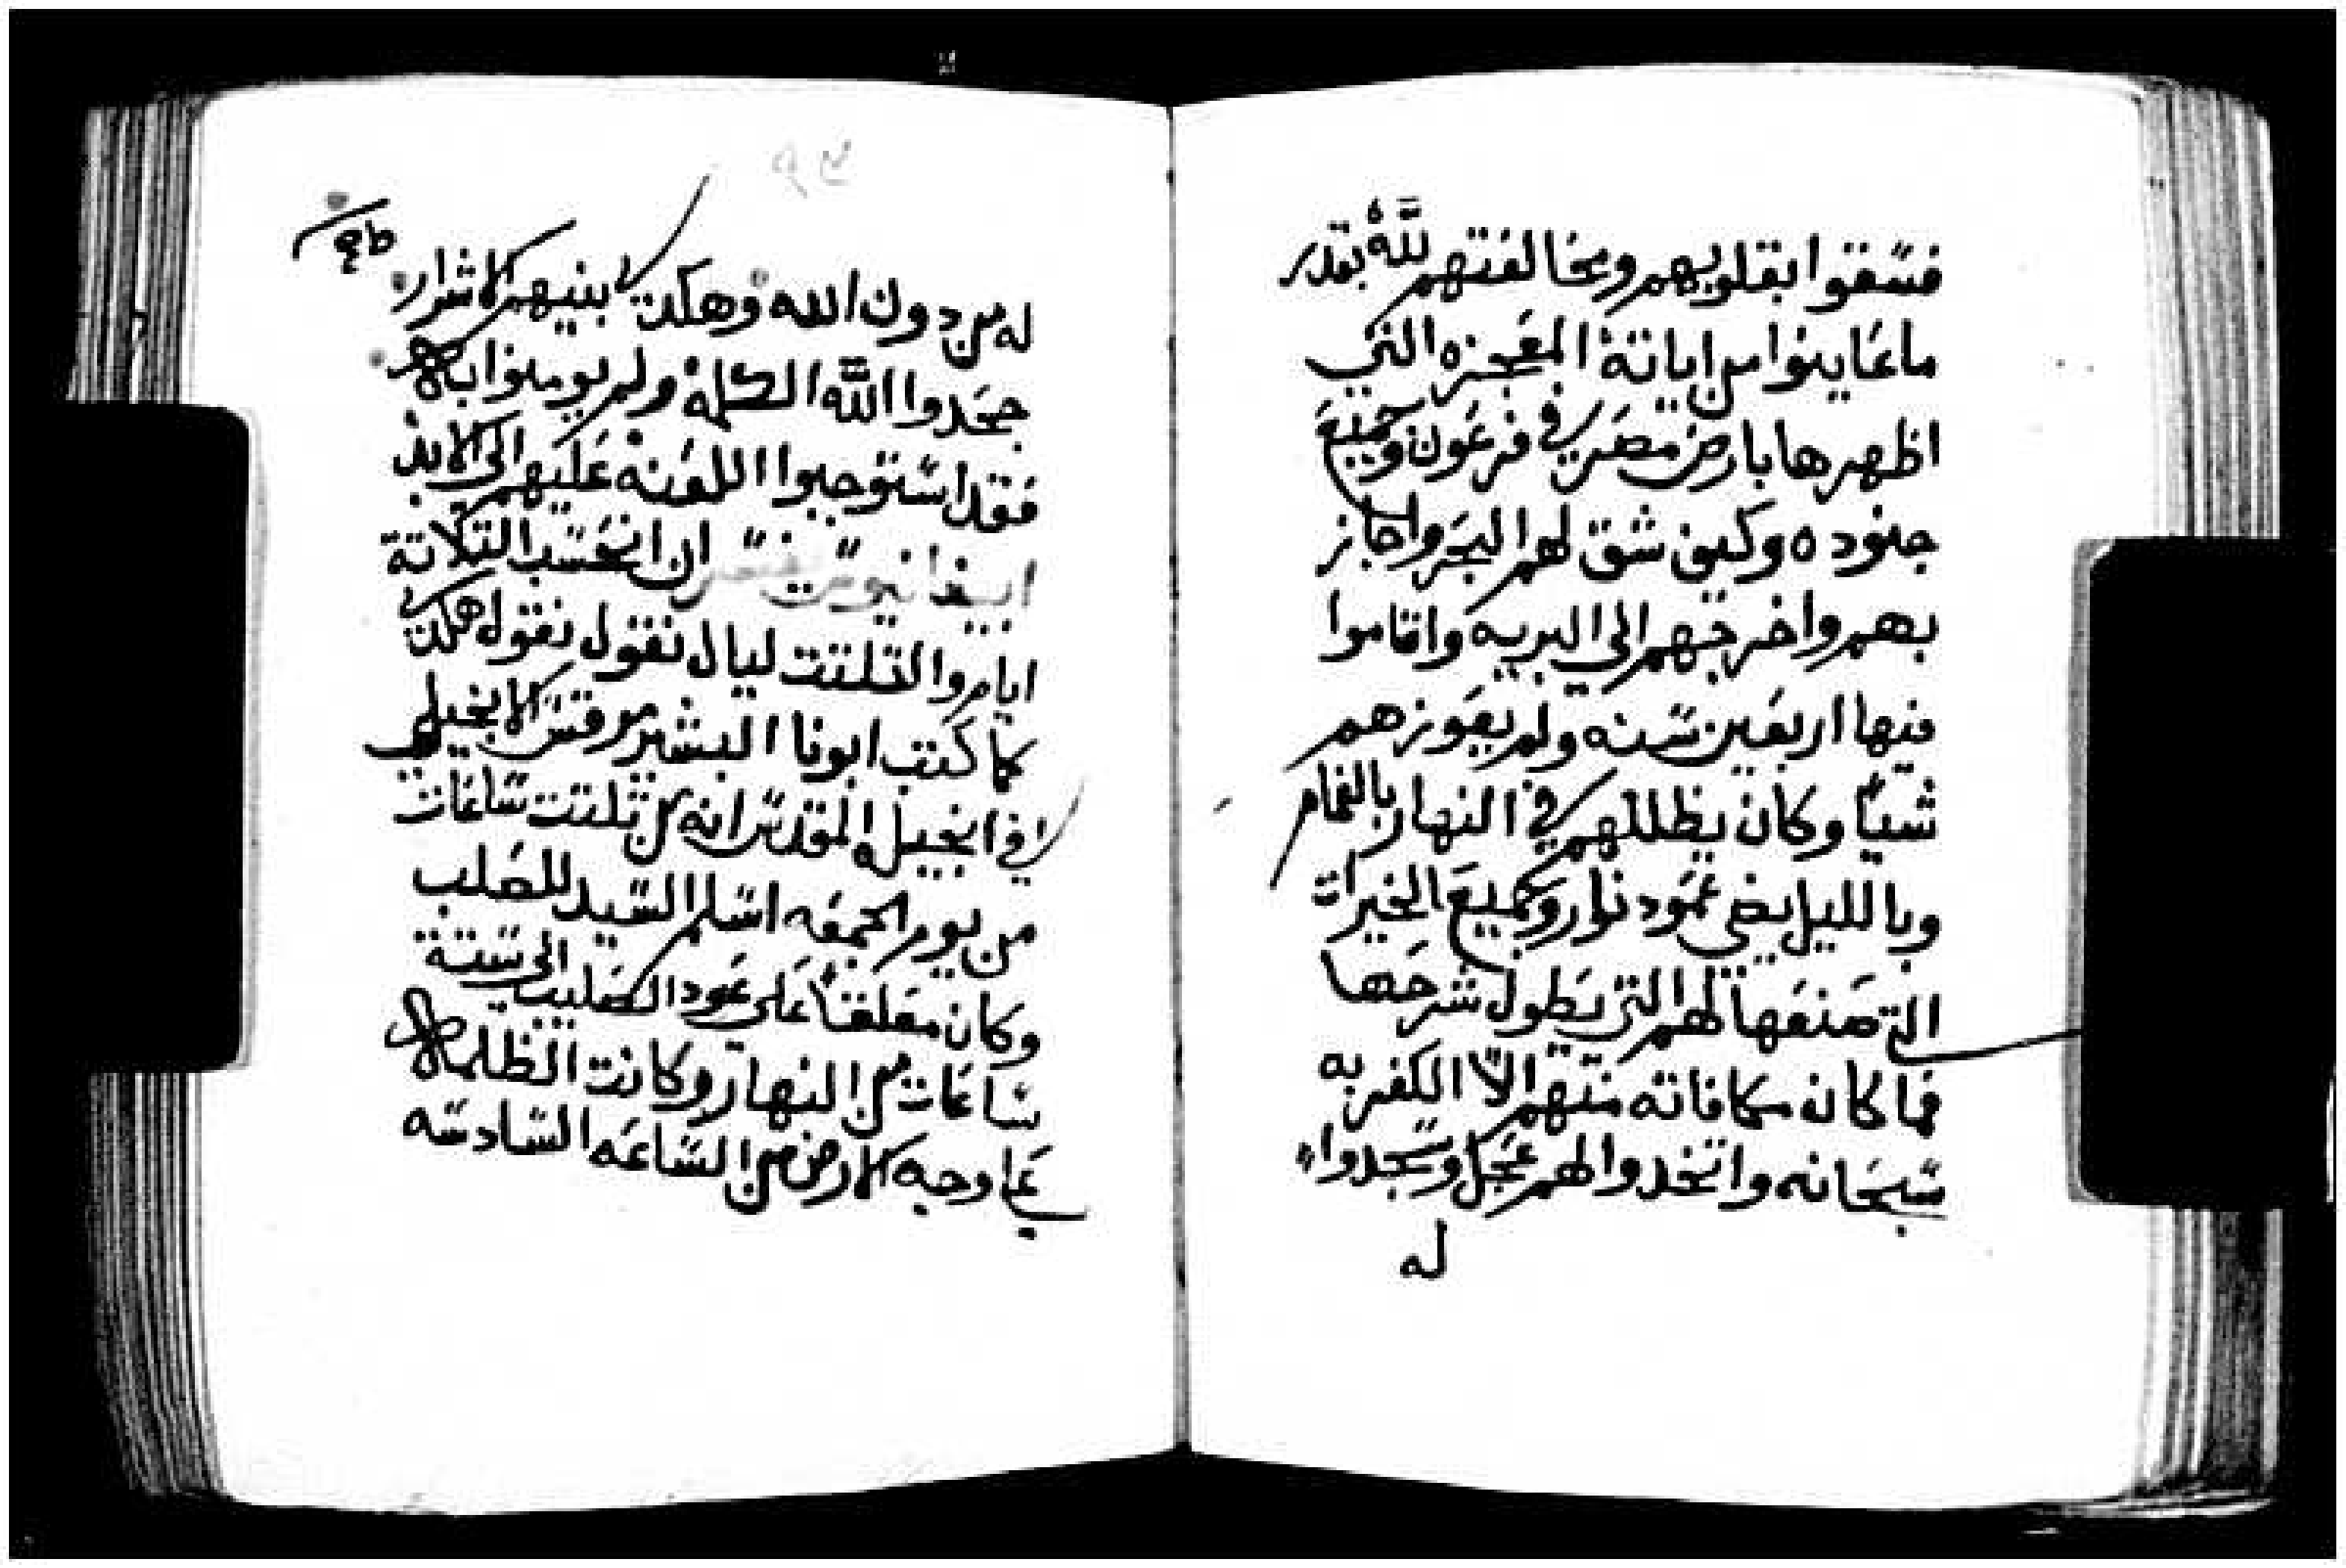 فسقوا بقلوبهم ومخالفتهم لله بقدر
ما عاينوا من اياته المعجزه التي
اظهرها بارض مصر في فرعون وجميع
جنوده وكيف شق لهم البحر واجاز
بهم واخرجهم الي البريه واقاموا
فيها اربعين سنه ولم يعوزهم
شيا وكان يظللهم في النهار بالغمام
وبالليل يضي عمود نار وجميع الخيرات
التي صنعها لهم التي يطول شرحها
فما كان مكافاته منهم الا الكفر به
سبحانه واتخدوا لهم عجل وسجدوا
له
له من دون الله وهكدى بنيهم الاشرار
جحدوا الله الكلمة ولم يومنوا به
فقد استوجبوا اللعنه عليهم الى الابد
ان انحسب التلاتة
ايام والتلتت ليال نقول نقول هكدى
كما كتب ابونا البشير مرقس الانجيلي
في انجيله المقدس انه من تلتت ساعات
من يوم الجمعه اسلم السيد للصلب
وكان معلقا على عود الصليب الى ستة
ساعات من النهار وكانت الظلمه
علي وجه الارض من الساعه السادسه